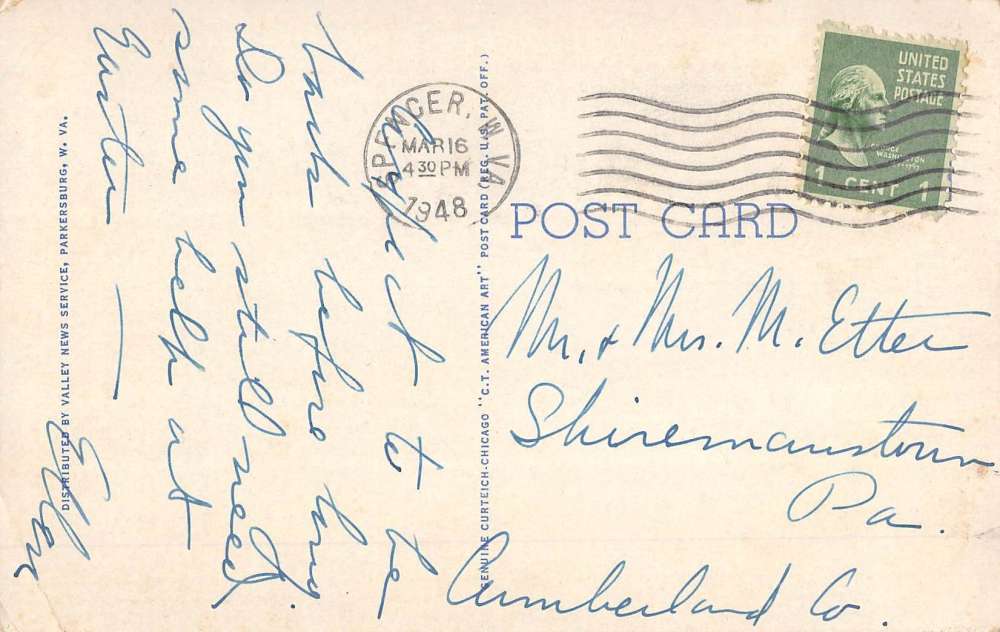 SPENCER, W. VA.
MAR 16
4 30 PM
1948
UNITED
STATES
POSTAGE
GEORGE
WASHINGTON
1 CENT 1
POST CARD
Expect to be
back before long.
Do you still need
some help at
Easter —
Mr. & Mrs. M. Etter
Shiremanstown
Pa.
Cumberland Co.
DISTRIBUTED BY VALLEY NEWS SERVICE, PARKERSBURG, W. VA.
GENUINE CURTEICH-CHICAGO "C.T. AMERICAN ART" POST CARD (REG. U.S. PAT. OFF.)